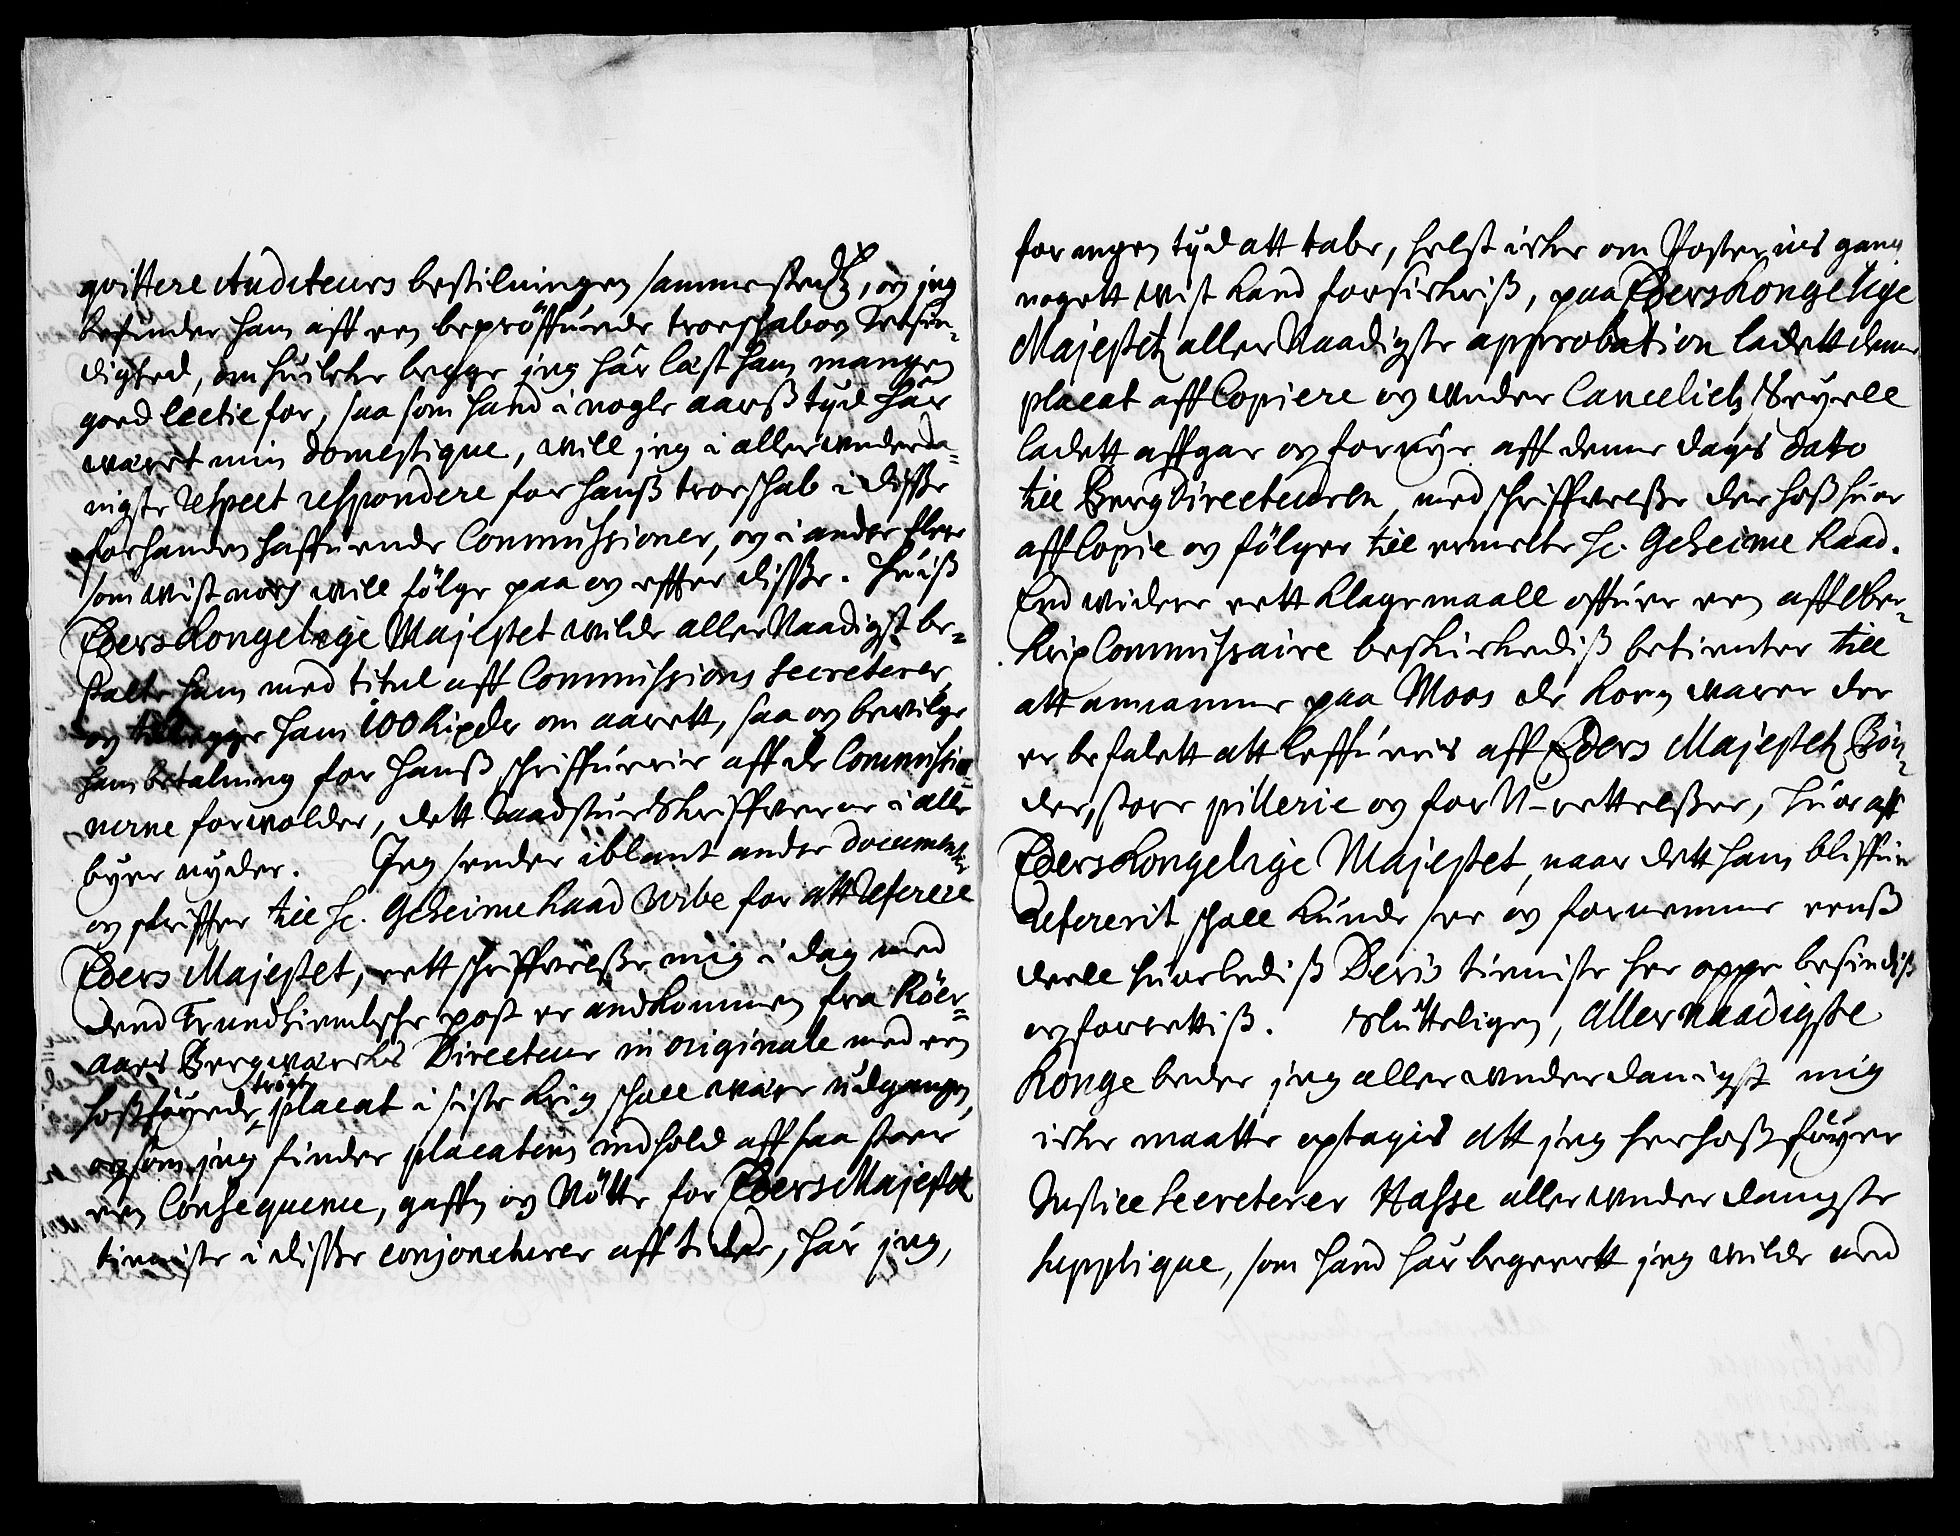 qvittere Auditeurs bestilningen sammestedtz, og jeg
befinder ham aff een beprøffuende troeschab og Netsin-
dighed, om huilcke begge jeg har læst ham mangen
goed lectie for, saa som hand i nogle aarß tyd har
wærret min domestique, will jeg i allerunderda-
nigste respect respondere for hanß troeschab i disse
forhanden haffuende Commissioner, og i andre flere
som wist noch will følge paa og effter disse. Huiß
Eders Kongelige Majestet wilde aller Naadigst be-
stalte ham med titul aff Commissions Secreterer,
og tillegge ham 100 Rixdr om aarett, saa og bewilge
ham betalning for hanß schriffuerie aff de Commissio-
nerne forvolder, dett Raadstueskriffverne i alle
byer nyder. Jeg sender iblant andre documenter
og schriffter till H. Geheime Raad Wibe for att referere
Eders Majestet, eett schriffvelsse mig i dag med
dend Trundhiemsche post er andkommen fra Röer-
aars Bergwærcks Directeur in originale med een
hoßföyede trögt placat i siste Krig schall være udgangen,
og som jeg finder placatens indhold aff saa stoer
een Conseqvence, gaffn og Nötte for Eders Majestetz
tieniste i disse conjoncturer aff tider, har jeg,
for ingen tyd att tabe, helst icke om Posternis gang
nogett wist kand forsickriß, paa Eders Kongelige
Majestetz aller Naadigste approbation ladett denne
placat aff Copiere og under Cancelietz Seyell
ladett affgae og fornye aff denne dags dato
till Berg Directeuren, med schriffvelsse der hoß huor
aff Copie og fölger till ermelte H. Geheime Raad.
End widere eett klagemaall offuer een aff Ober-
krigs Commissaire beskickediß betienter till
att annamme paa Moos de korn warer der
er befalett att leffueris aff Eders Majestetz Bön-
der, store pillerie og for U-rettelsser, huor aff
Eders Kongelige Majestet, naar dett ham bliffuer
refererit schall kunde see og fornemme eenß
deell huorlediß Deris tieniste her oppe befindiß
og forrettiß. Slutteligen, Aller Naadigste
Konge beder jeg aller underdanigst mig
icke maatte optagis att jeg her hoß föyer
Justice Secreterer Hasse aller underdangste
supplique, som hand har begieert jeg wilde med